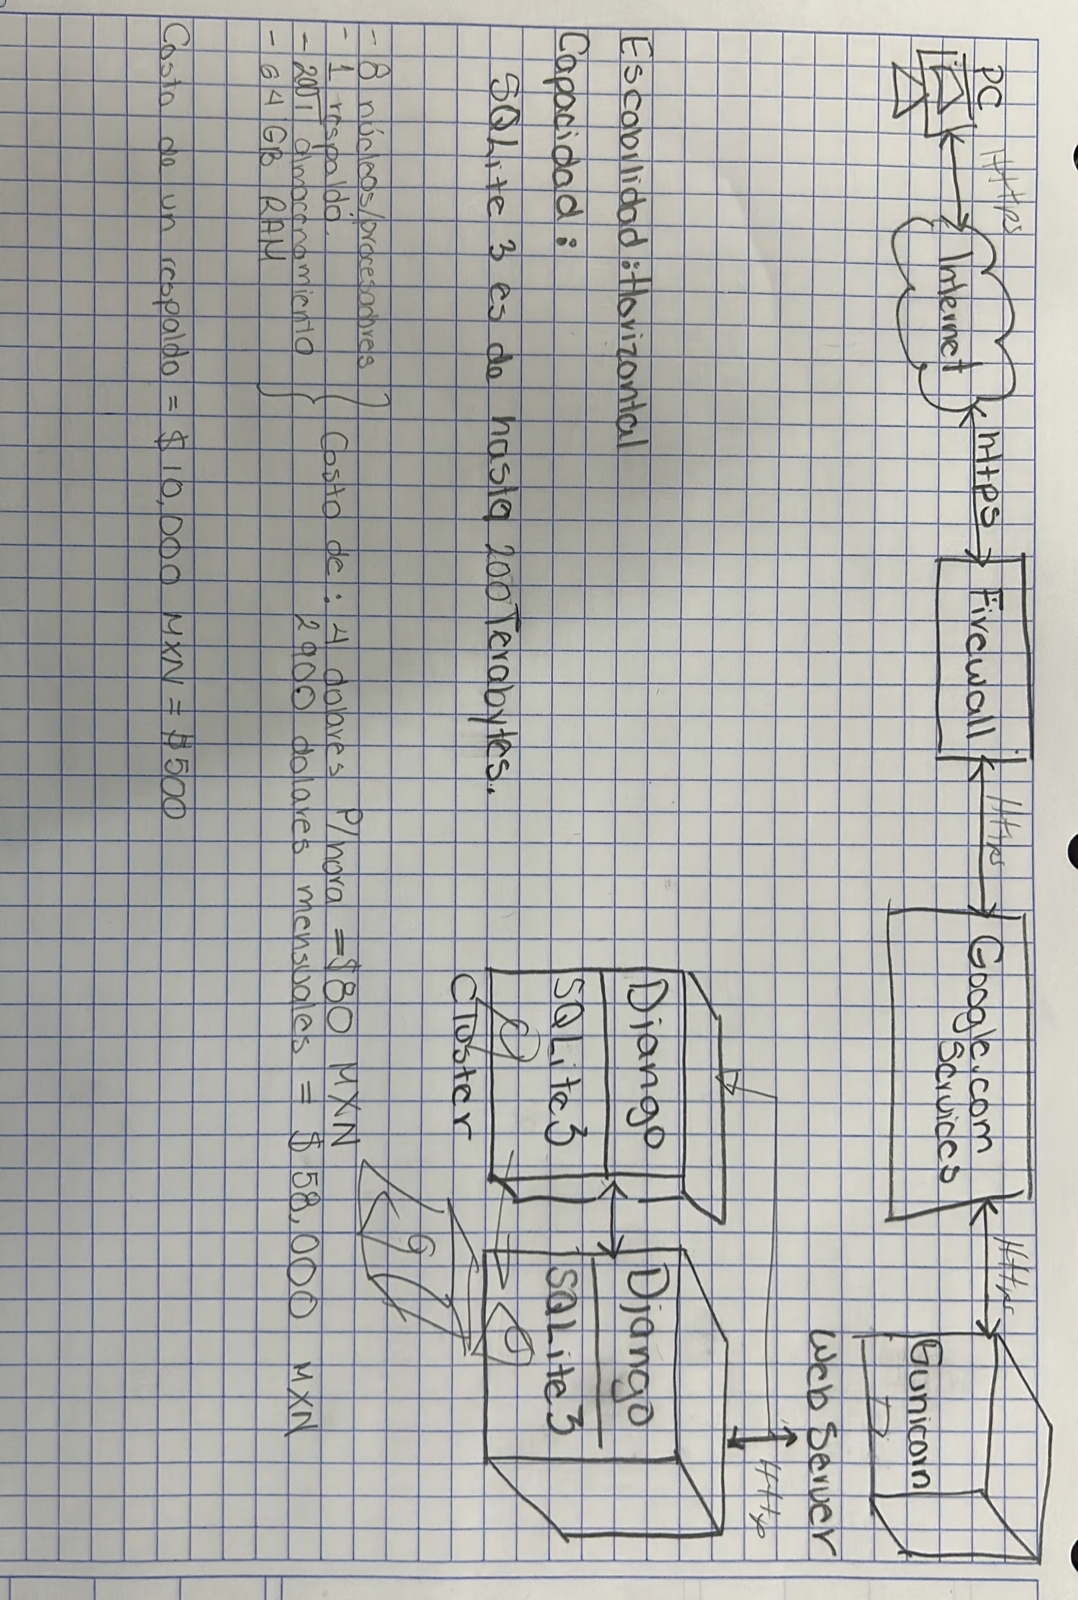 PC
Https
Internet
https
Firewall
Https
Google.com
Services
Https
Gunicorn
Web Server
Http
Django
SQLite 3
Cluster
Django
SQLite 3
Escabilidad: Horizontal
Capacidad:
SQLite 3 es de hasta 200 Terabytes.
- 8 núcleos/procesadores
- 1 respaldo
- 200T almacenamiento
- 64 GB RAM
Costo de: 4 dolares P/hora = $80 MXN
2900 dolares mensuales = $58,000 MXN
Costo de un respaldo = $10,000 MXN = $500